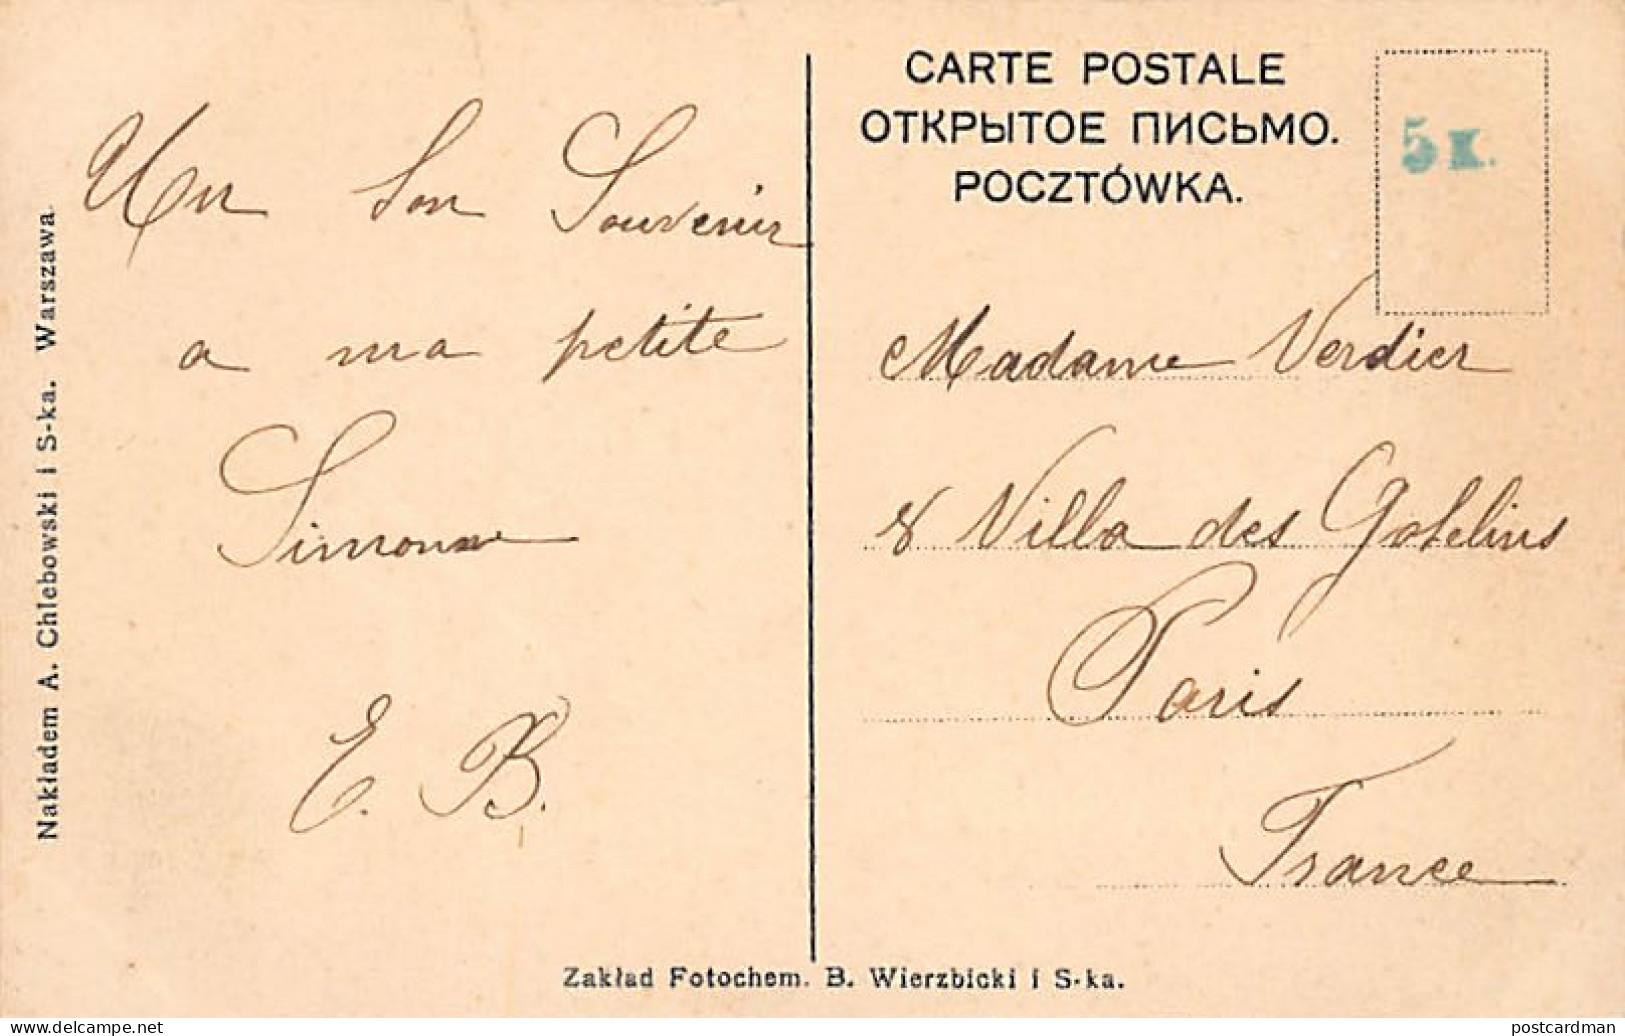 Un bon Souvenir
a ma petite
Simonne
E. B.
CARTE POSTALE
ОТКРЫТОЕ ПИСЬМО.
POCZTÓWKA.
5 K.
Madame Verdier
8 Villa des Gobelins
Paris
France
Nakładem A. Chlebowski i S-ka. Warszawa.
Zakład Fotochem. B. Wierzbicki i S-ka.
delcampe.net
postcardman